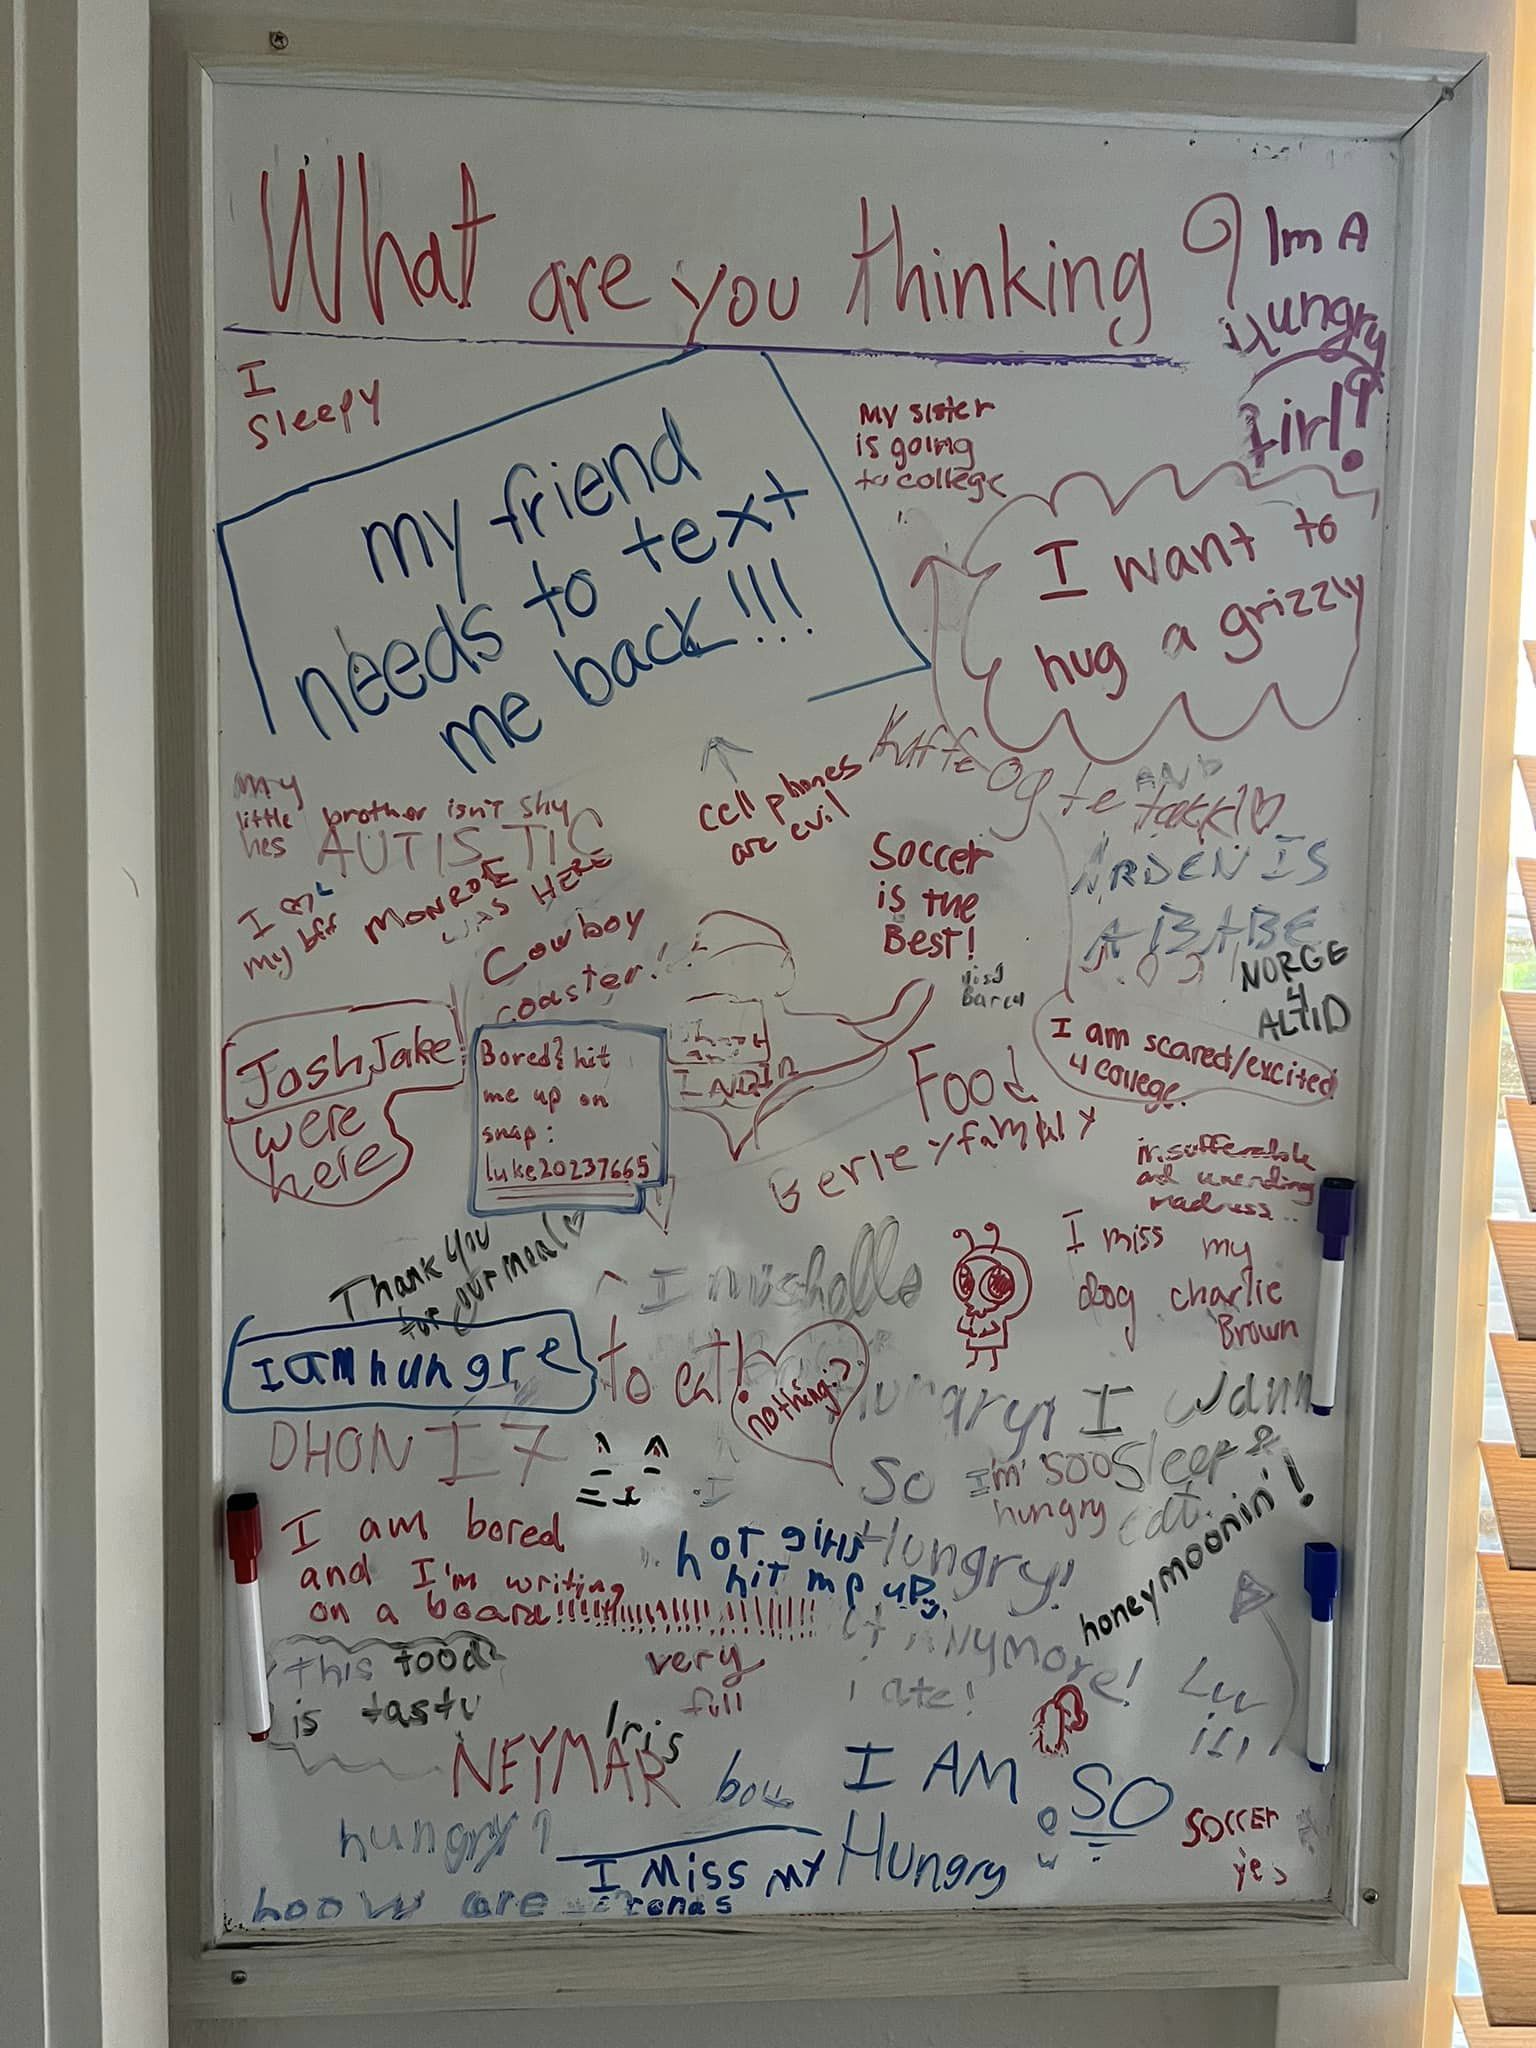 What are you thinking ?
Im A
Hungry
Girl!
I
sleepy
my friend
needs to text
me back!!!
My sister
is going
to college
I want to
hug a grizzly
My
little brother isn't shy
hes AUTISTIC
I am
my bff
MONROE
WAS HERE
cell phones
are evil
Soccer
is the
Best!
AND
ARDEN IS
A BABE
NORGE
4
ALTID
Cowboy
coaster!
Josh, Jake
were
here
Bored? hit
me up on
snap:
luke20237665
I am scared/excited
4 college
Food
family
insufferable
and unending
madness..
Thank you
for our meal
I miss my
dog charlie
Brown
I am hungre
to eat!
nothing?
Hungry! I wann
Sleep &
eat.
DHONI 7
So
Hungry!
I'm soo
hungry
honeymoonin'!
I am bored
and I'm writing
on a board!!!!!!!!!!!!!!!!!!!!!!!!
hot girls
hit me up
ANYMORE!
i ate!
this food
is tasty
very
full
Iris
NEYMAR
I AM SO
Hungry
soccer
yes
hungry?
I Miss my
hoow are